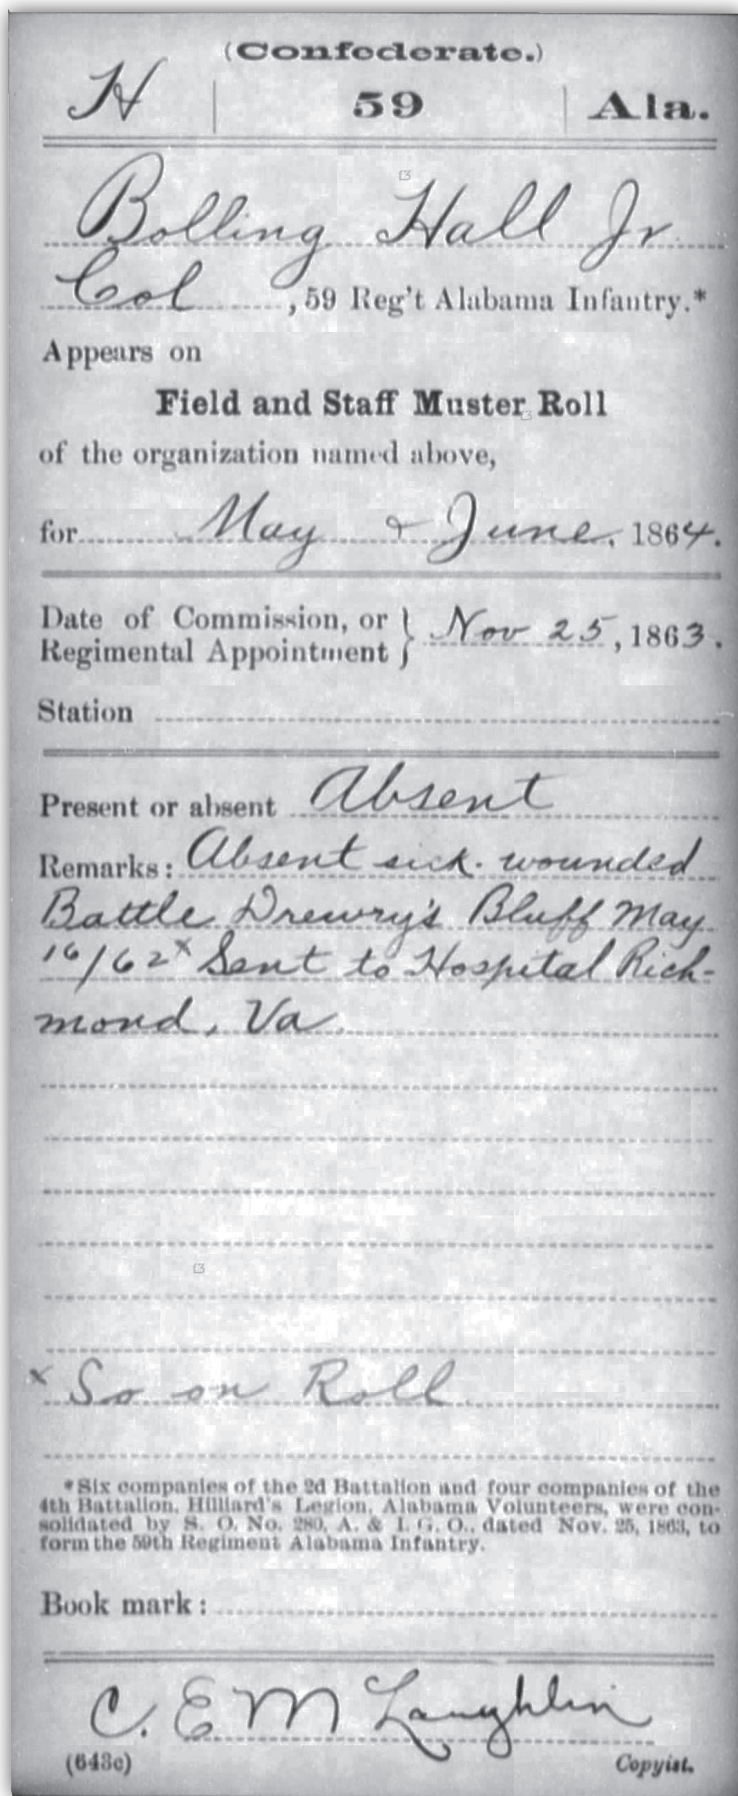 (Confederate.)
H | 59 | Ala.
Bolling Hall Jr.
Col, 59 Reg't Alabama Infantry.*
Appears on
Field and Staff Muster Roll
of the organization named above,
for May & June, 1864.
Date of Commission, or
Regimental Appointment } Nov 25, 1863.
Station
Present or absent Absent
Remarks: Absent sick. wounded
Battle Drewry's Bluff May
16/62x Sent to Hospital Rich-
mond, Va.
x So on Roll
*Six companies of the 2d Battalion and four companies of the
4th Battalion, Hilliard's Legion, Alabama Volunteers, were con-
solidated by S. O. No. 280, A. & I. G. O., dated Nov. 25, 1863, to
form the 59th Regiment Alabama Infantry.
Book mark:
C. E McLaughlin
(643c) Copyist.